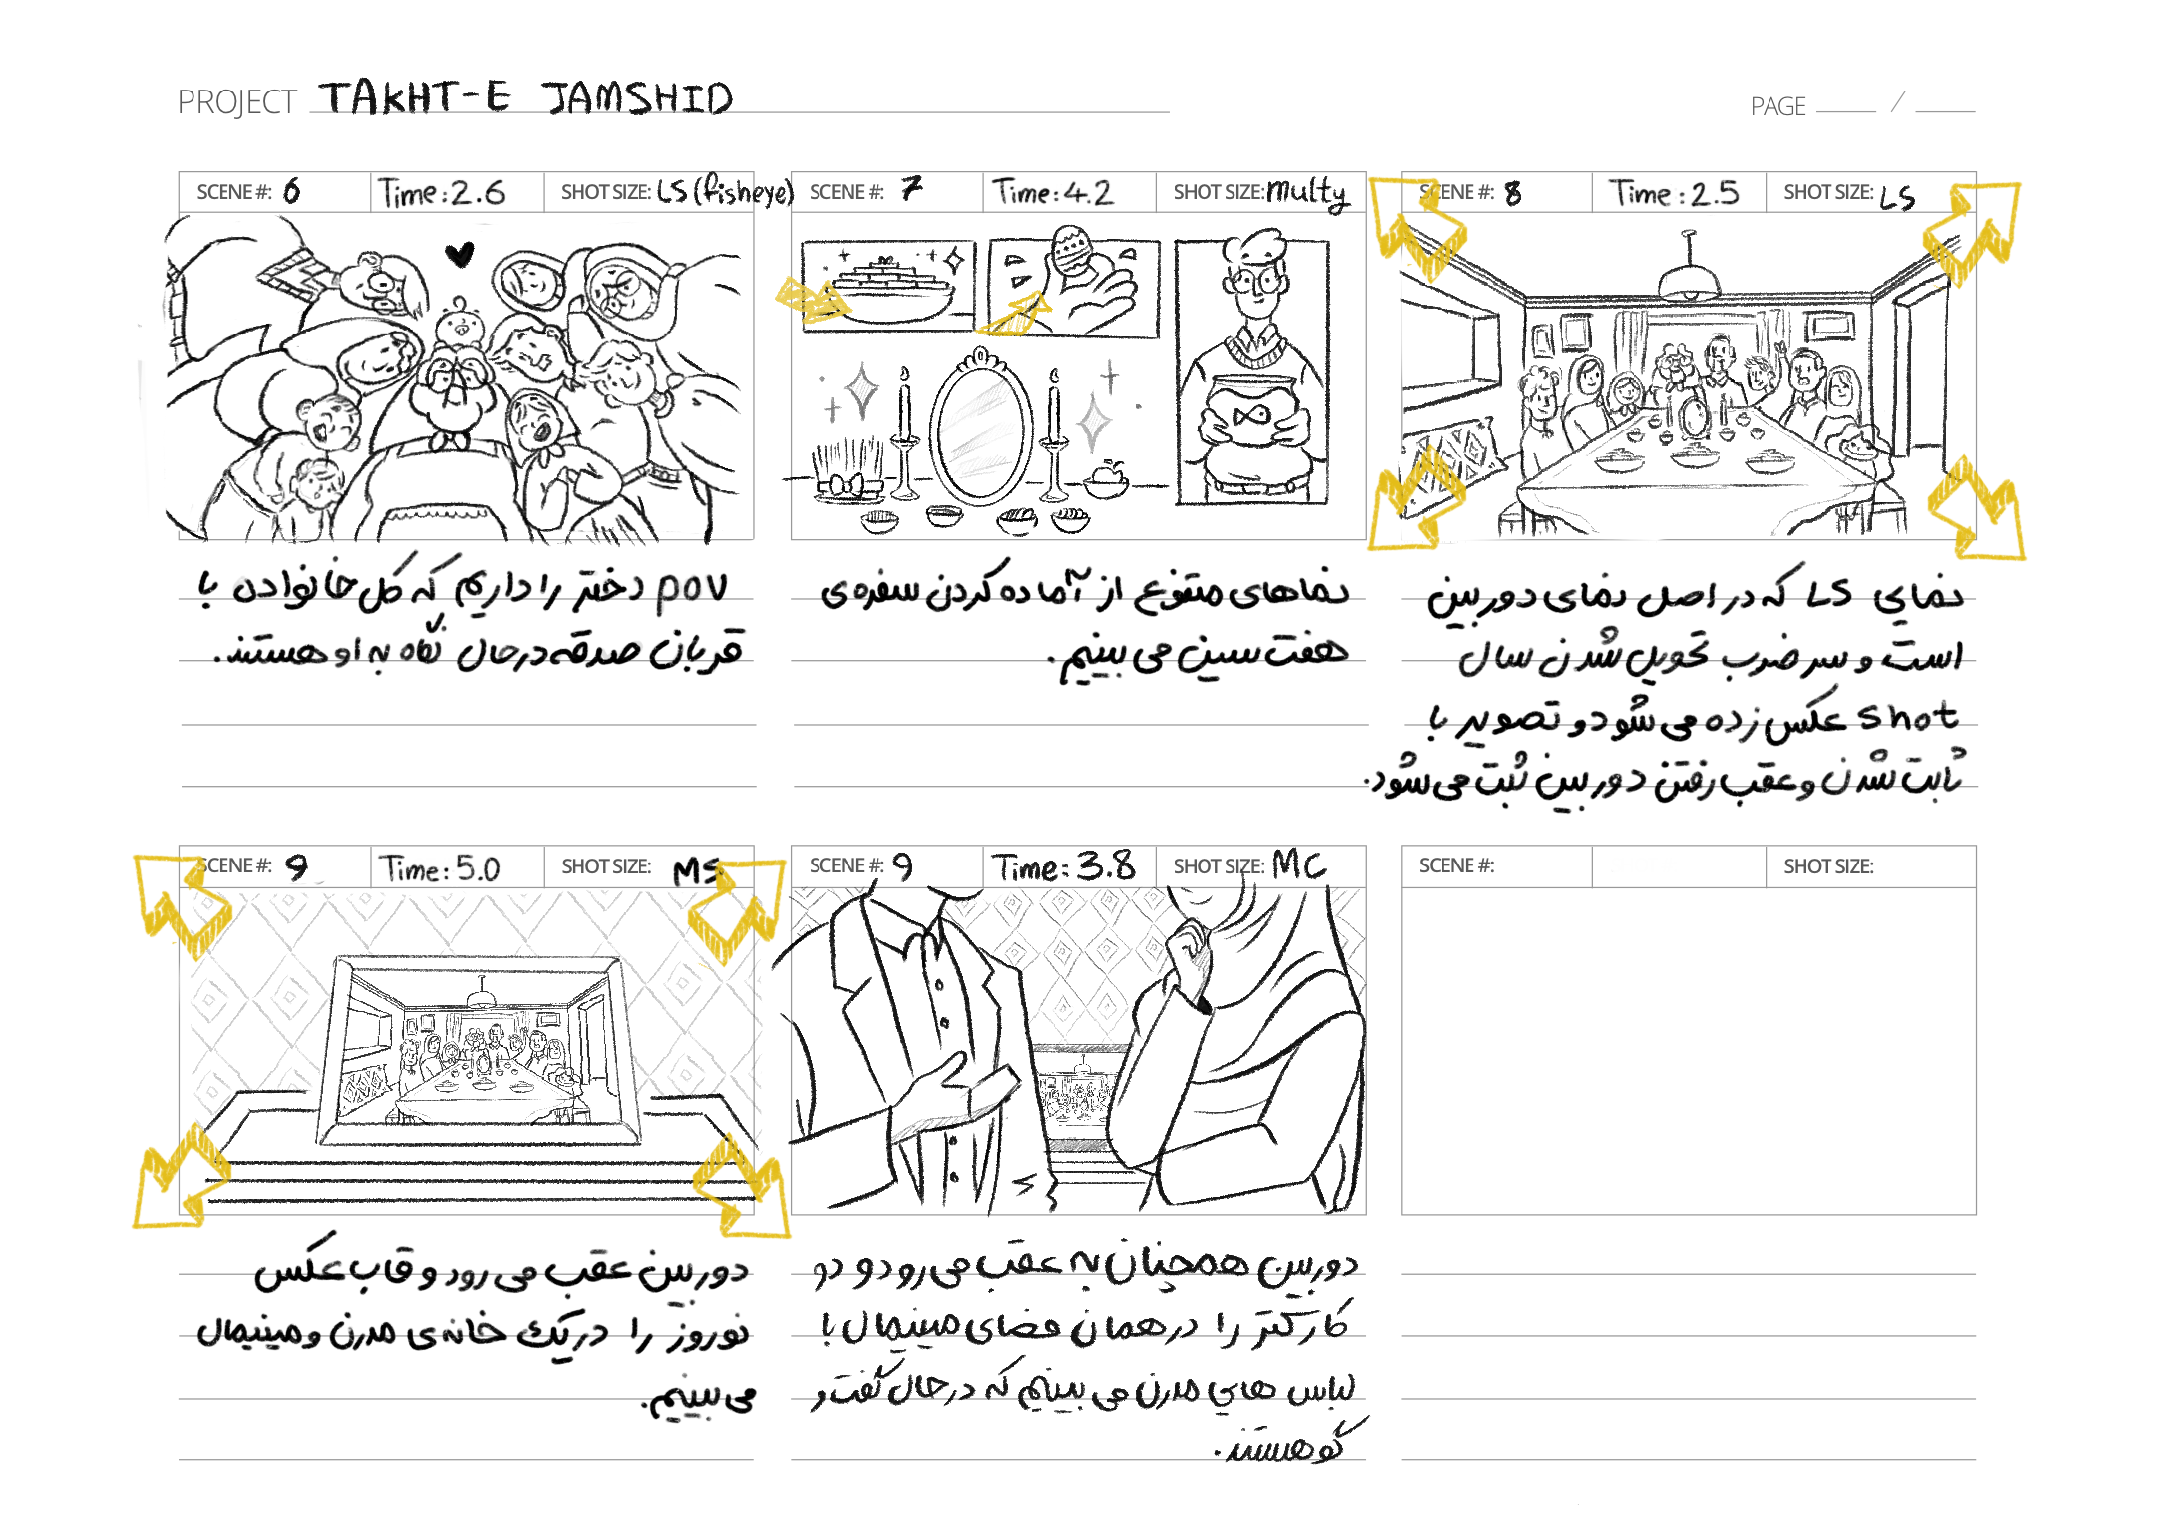 PROJECT TAKHT-E JAMSHID
PAGE /
SCENE #: 6 Time: 2.6 SHOT SIZE: LS (fisheye)
pov دختر را داریم که کل خانواده با
قربان صدقه درحال نگاه به او هستند.
SCENE #: 7 Time: 4.2 SHOT SIZE: multy
نماهای متنوع از آماده کردن سفره‌ی
هفت سین می بینیم.
SCENE #: 8 Time: 2.5 SHOT SIZE: LS
نمایی LS که در اصل نمای دوربین
است و سر ضرب تحویل شدن سال
shot عکس زده می شود و تصویر با
ثابت شدن و عقب رفتن دوربین ثبت می شود.
SCENE #: 9 Time: 5.0 SHOT SIZE: MS
دوربین عقب می رود و قاب عکس
نوروز را در یک خانه‌ی مدرن و مینیمال
می بینیم.
SCENE #: 9 Time: 3.8 SHOT SIZE: MC
دوربین همچنان به عقب می رود و دو
کارکتر را در همان فضای مینیمال با
لباس هایی مدرن می بینیم که در حال گفت و
گو هستند.
SCENE #: SHOT SIZE: